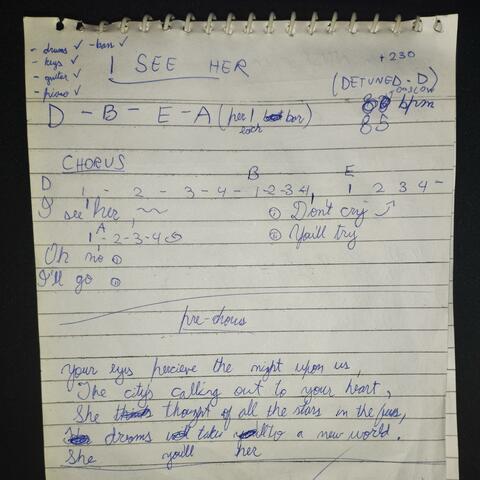 - drums ✓ - bass ✓
- keys ✓
- guitar ✓
- piano ✓
I SEE HER
+230
(DETUNED - D)
too slow
80 bpm
85
D - B - E - A (per 1 bar)
each
CHORUS
D 1 - 2 - 3 - 4 - B 1-2-3-4, E 1 2 3 4 -
I see her, ① Don't cry
A 1 - 2-3-4 ② You'll try
Oh no ①
I'll go ②
pre-chorus
Your eyes percieve the night upon us,
The citys calling out to your heart,
She thought of all the stars in the
dreams take to a new world.
She you'll her